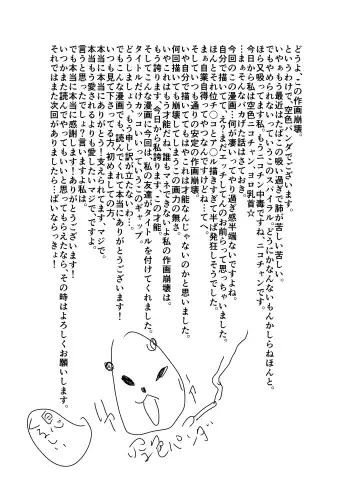 どうよ、この作画崩壊。
というわけで、空色パンダでございます。
いやぁもう最近はたばこの吸い過ぎで肺が苦しい苦しい。
でもやめられないこのスパイラル。どうにかなんないもんかしらねほんと。
ほら又吸ってます私。もうニコチン中毒ですね、ニコチャンです。
今日から私は空色ニコチャンヨロ乳首☆
…まぁそんなげた話はさておき、
今回のこの漫画…何が凄いってやり過ぎ感半端ないですよね。
自分で描いてて、今…まだエ○チしてんのお前らって思っちゃいました。
ほんとその位チ○コと○○ンコ描きすぎて半ば発狂しそうでした。
まぁ自業自得ってやつなんですけどね…てへ。
そしていつも通りの安定の作画崩壊。
いや自分で描いててもはやこれは才能なんじゃないのかと思いました。
何回描いても崩壊してしまうこの画力の無さ。
いやこれはもう才能だね。誰もマネできないよ私の作画崩壊は。
もう誇ります。今日から私誇りますよこの才能。
そしてこんな漫画に今回は、私の友達がタイトルを付けてくれました。
タイトルだけカッコいいっていうこのギャップ。
どうしましょう…もう申し訳が立たないわ…。
でもこんな漫画でも、読んでくれて本当にありがとうございます！
いつも見て下さってる方、初めましての方、
本当に本当にありがとう！あいんらゔゅです、マジで。
本当もう愛されるよりも愛したいマジで、ですよ。
言うと思ったでしょ？言いますよ私は。
本当に本当に感謝してます！ありがとうございます！
いつかまた読んでやってもいい！と思ってもらえたなら、その時はよろしくお願いします。
それではまた次回がありましたら…ばいならっきょ！
空色パンダ